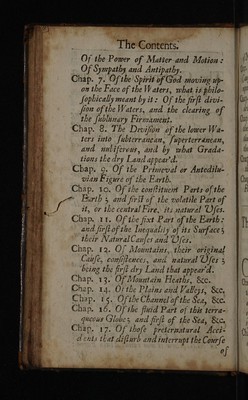 The Contents.
Of the Power of Matter and Motion:
Of Sympathy and Antipathy.
Chap. 7. Of the Spirit of God moving up-
on the Face of the Waters, what is philo-
sophically meant by it: Of the first divi-
sion of the Waters, and the clearing of
the sublunary Firmament.
Chap. 8. The Division of the lower Wa-
ters into subterranean, superterranean,
and nubiferous, and by what Grada-
tions the dry Land appear'd.
Chap. 9. Of the Primeval or Antedilu-
vian Figure of the Earth.
Chap. 10. Of the constituent Parts of the
Earth; and first of the volatile Part of
it, or the central Fire, its natural Uses.
Chap. 11. Of the fixt Part of the Earth:
and first of the Inequality of its Surface;
their Natural Causes and Uses.
Chap. 12. Of Mountains, their original
Cause, consistences, and natural Uses;
being the first dry Land that appear'd.
Chap. 13. Of Mountain Heaths, &c.
Chap. 14. Of the Plains and Valleys, &c.
Chap. 15. Of the Channel of the Sea, &c.
Chap. 16. Of the fluid Part of this terra-
queous Globe; and first of the Sea, &c.
Chap. 17. Of those preternatural Acci-
dents that disturb and interrupt the Course
of